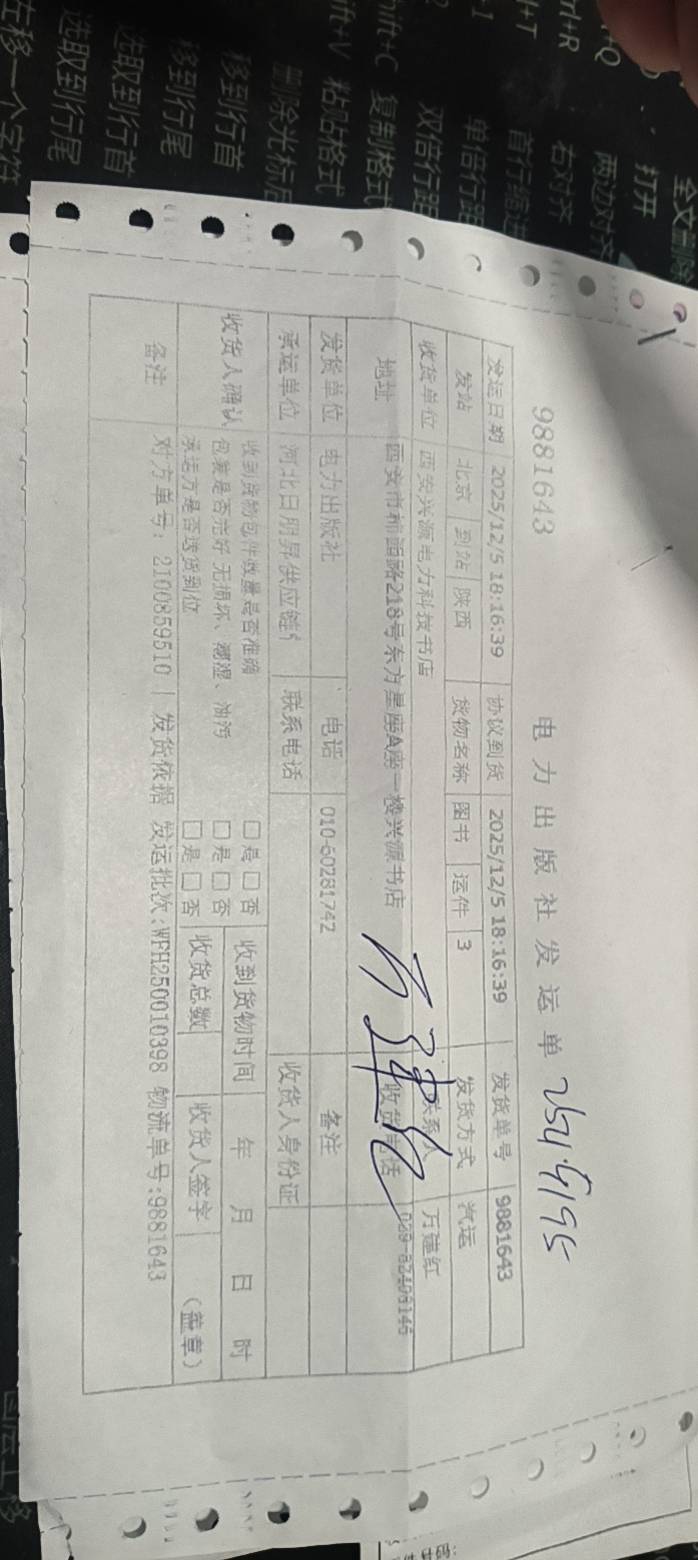 9881643
电力出版社发运单
发运日期 2025/12/5 18:16:39 协议到货 2025/12/5 18:16:39 发货单号 9881643
发站 北京 到站 陕西 货物名称 图书 运件 3 发货方式 汽运
收货单位 西安兴源电力科技书店 联系人 万建红
地址 西安市 路218号东方星座A座一楼兴源书店 收货电话 029-82408146
发货单位 电力出版社 电话 010-60281742 备注
承运单位 河北日朋昇供应链 联系电话 收货人身份证
收货人确认 收到货物包件数量是否准确 □是□否 收到货物时间 年 月 日 时
包装是否完好 无损坏、潮湿、油污 □是□否
承运方是否送货到位 □是□否 收货总数 收货人签字 (盖章)
备注 对方单号: 2100859510 | 发货依据 发运批次:WFH250010398 物流单号:9881643
全文删除
打开
两边对齐
右对齐
首行缩进
单倍行距
双倍行距
复制格式
粘贴格式
删除光标后
移到行首
移到行尾
选取到行首
选取到行尾
左移一个字符